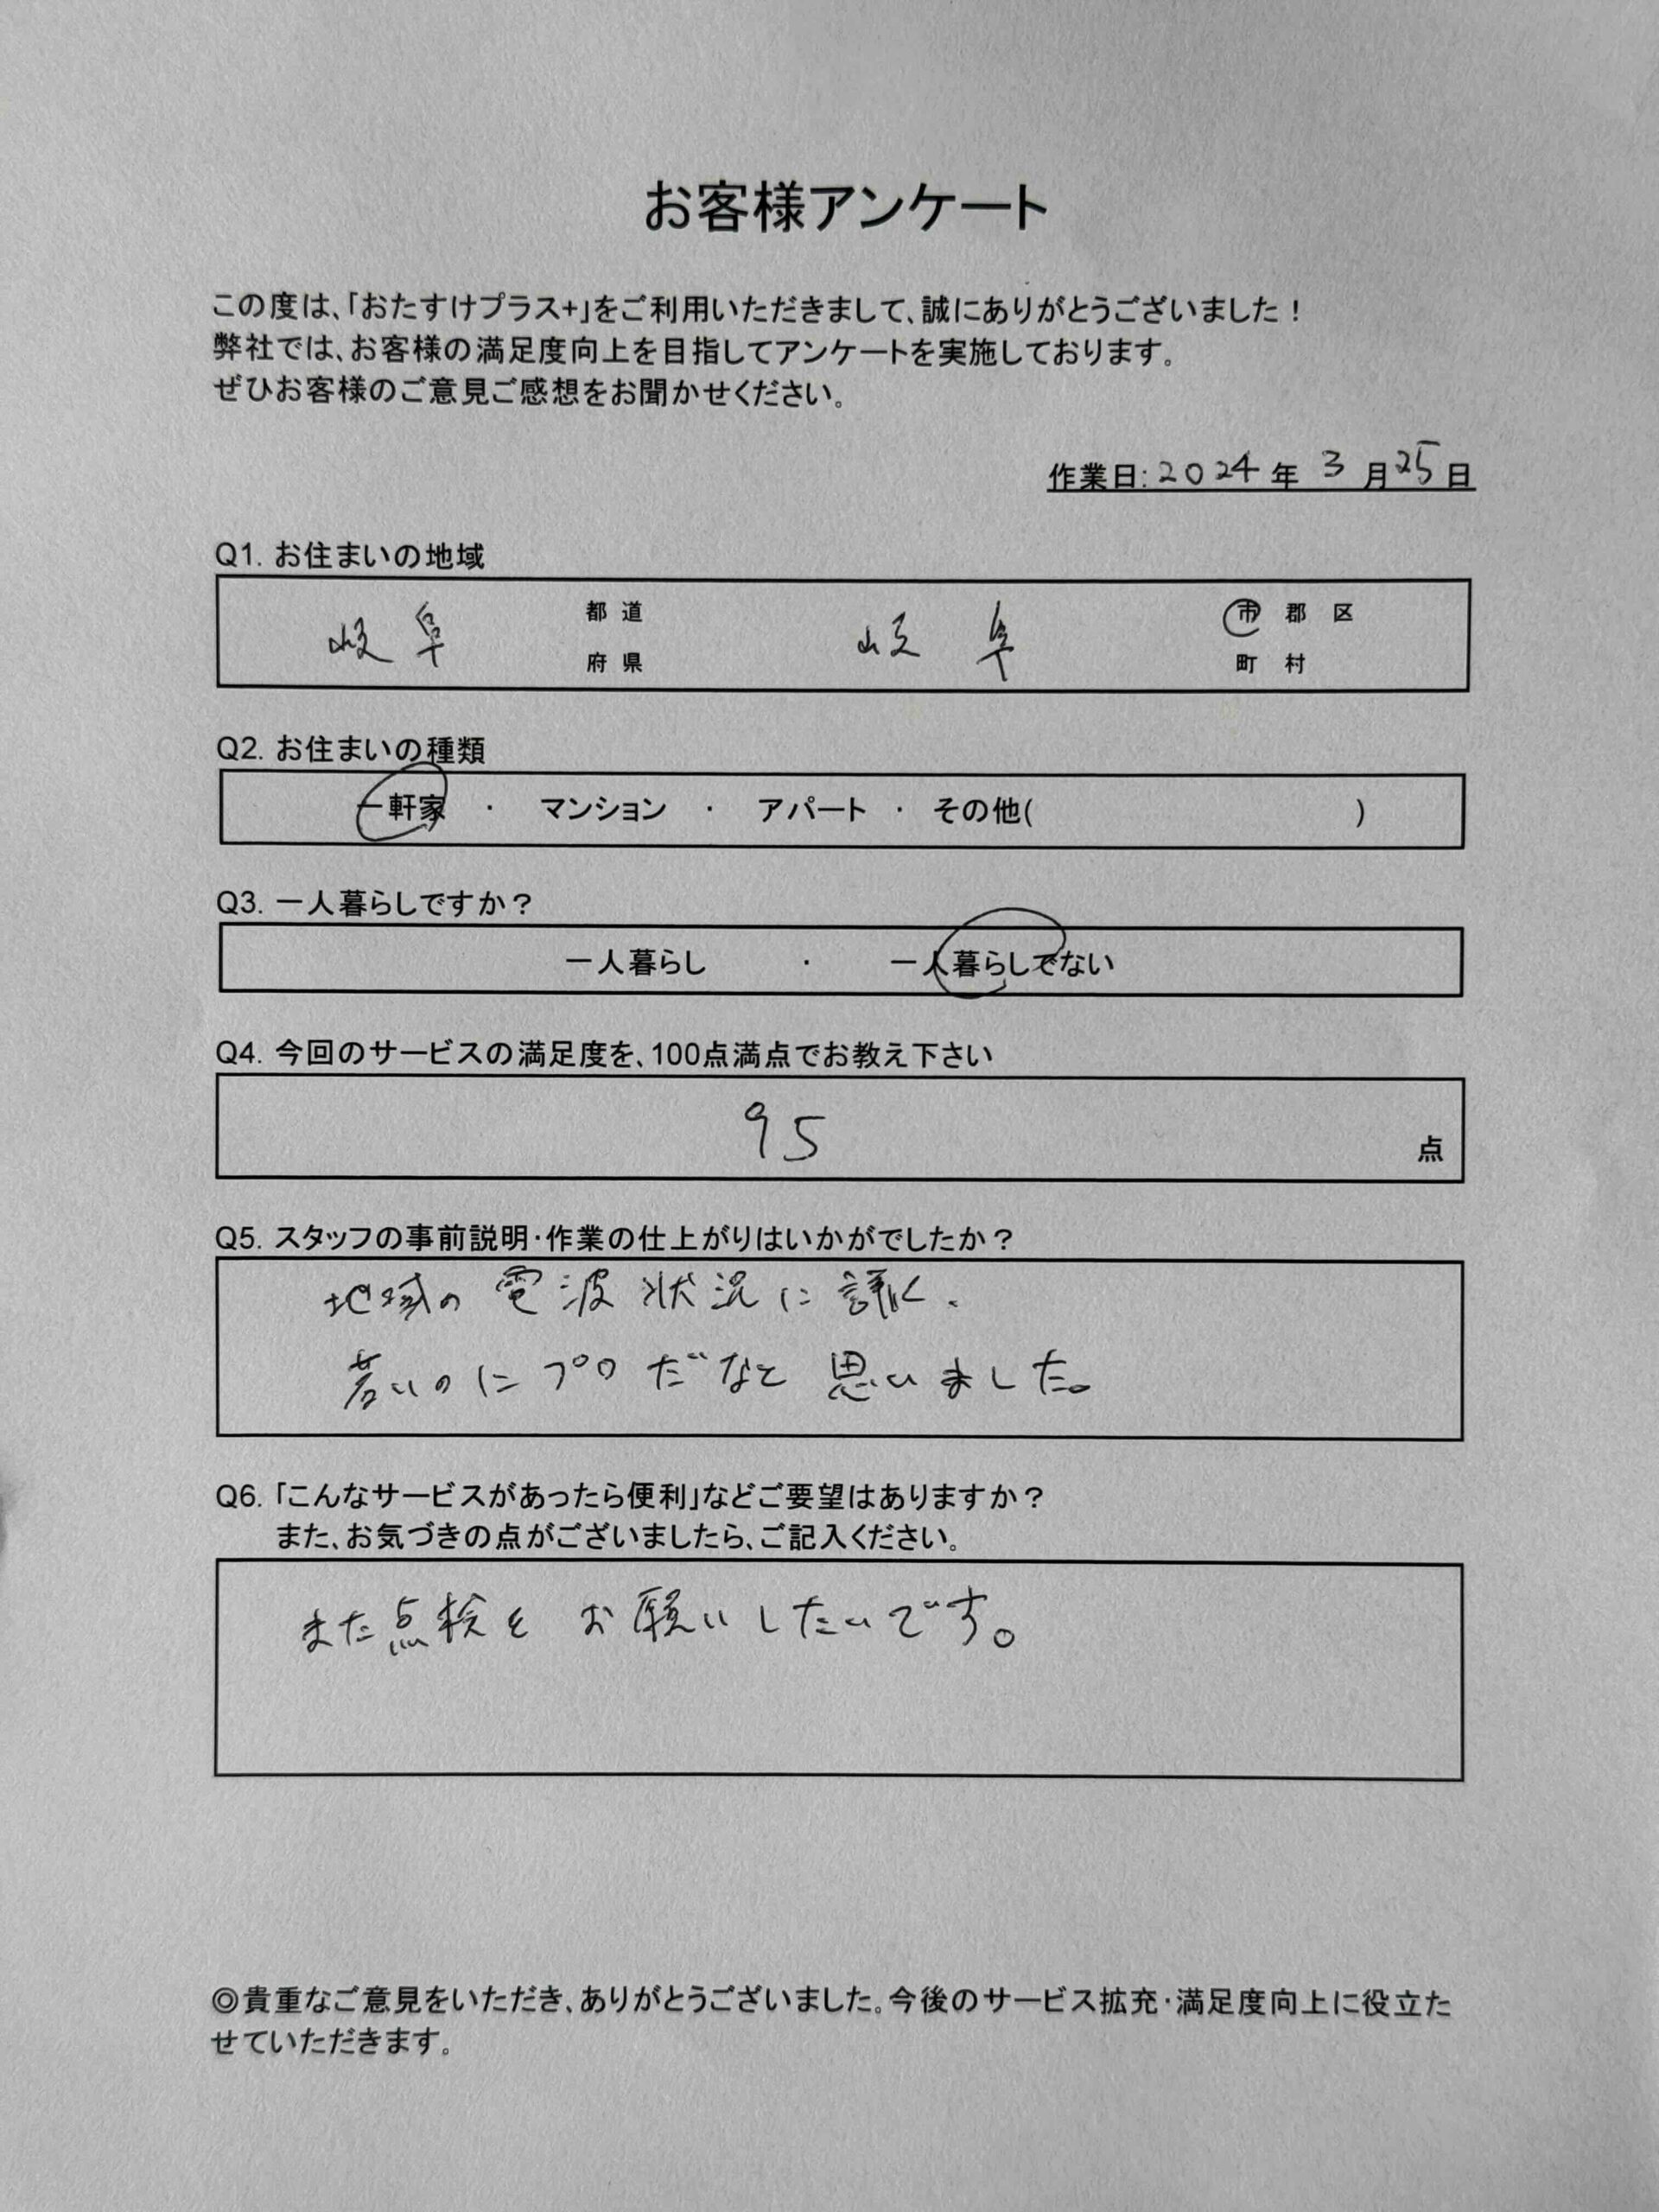 お客様アンケート
この度は、「おたすけプラス+」をご利用いただきまして、誠にありがとうございました！
弊社では、お客様の満足度向上を目指してアンケートを実施しております。
ぜひお客様のご意見ご感想をお聞かせください。
作業日: 2024 年 3 月 25 日
Q1. お住まいの地域
岐阜 都 道 岐阜 市 郡 区
府 県 町 村
Q2. お住まいの種類
一軒家 ・ マンション ・ アパート ・ その他( )
Q3. 一人暮らしですか？
一人暮らし ・ 一人暮らしでない
Q4. 今回のサービスの満足度を、100点満点でお教え下さい
95 点
Q5. スタッフの事前説明・作業の仕上がりはいかがでしたか？
地域の電波状況に詳しく、
若いのにプロだなと思いました。
Q6. 「こんなサービスがあったら便利」などご要望はありますか？
また、お気づきの点がございましたら、ご記入ください。
また点検をお願いしたいです。
◎貴重なご意見をいただき、ありがとうございました。今後のサービス拡充・満足度向上に役立た
せていただきます。